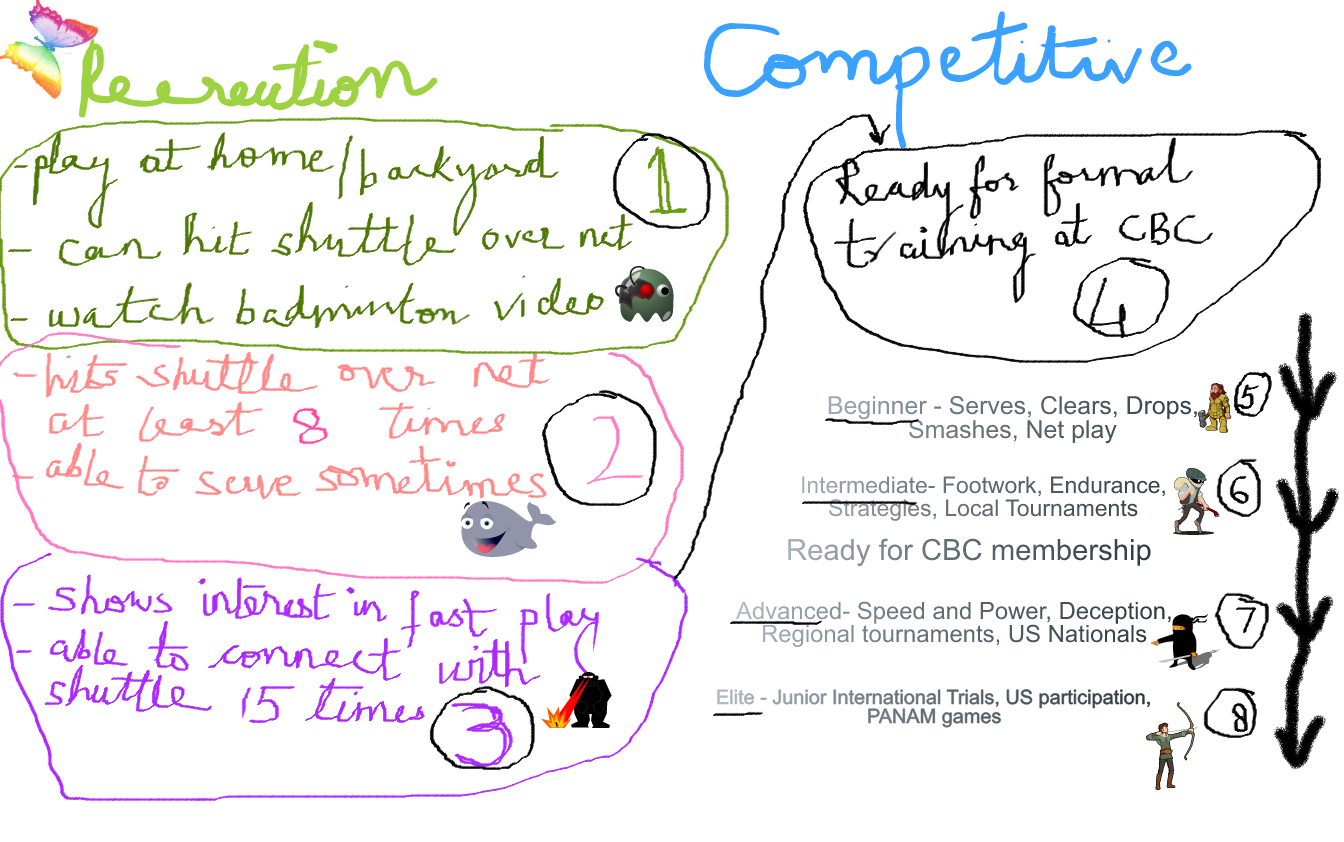 Recreation
- play at home/backyard
1
- can hit shuttle over net
- watch badminton video
- hits shuttle over net
at least 8 times
2
- able to serve sometimes
- shows interest in fast play
- able to connect with
shuttle 15 times
3
Competitive
Ready for formal
training at CBC
4
Beginner - Serves, Clears, Drops,
Smashes, Net play
5
Intermediate- Footwork, Endurance,
Strategies, Local Tournaments
6
Ready for CBC membership
Advanced- Speed and Power, Deception,
Regional tournaments, US Nationals
7
Elite - Junior International Trials, US participation,
PANAM games
8